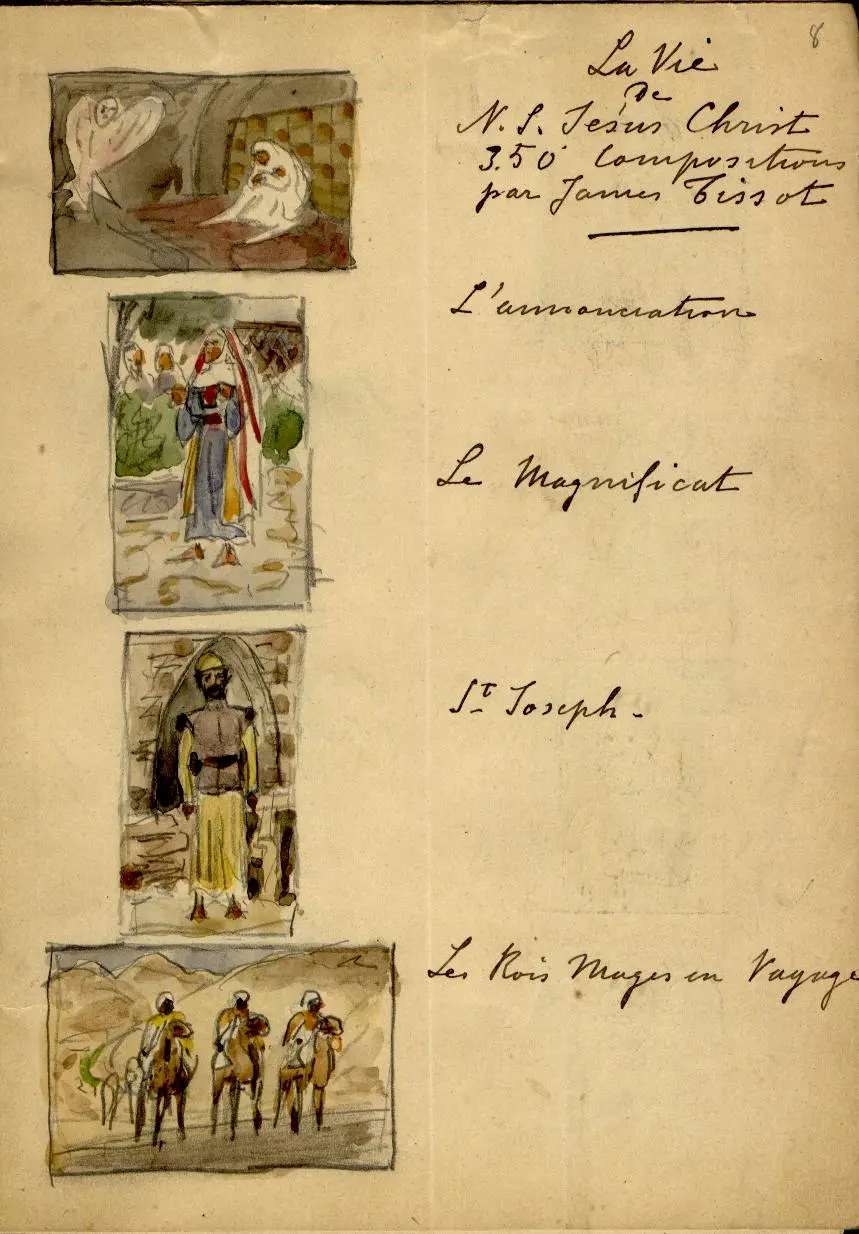 8
La Vie
De
N. S. Jésus Christ
350 Compositions
par James Tissot
L'annonciation
Le Magnificat
St Joseph -
Les Rois Mages en Voyage